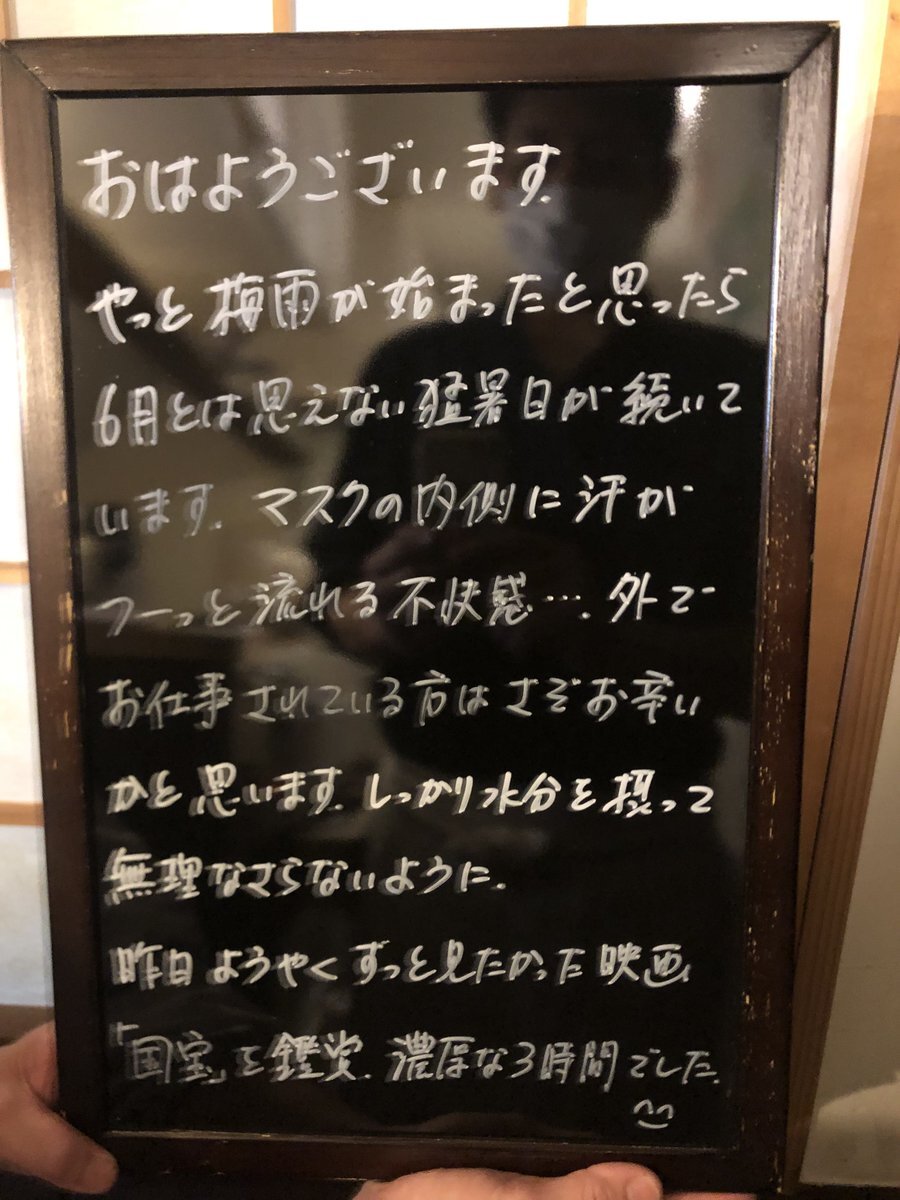 おはようございます.
やっと梅雨が始まったと思ったら
6月とは思えない猛暑日が続いて
います. マスクの内側に汗が
フーっと流れる不快感…. 外で
お仕事されている方はさぞお辛い
かと思います. しっかり水分を摂って
無理なさらないように.
昨日ようやくずっと見たかった映画
「国宝」を鑑賞. 濃厚な3時間でした.